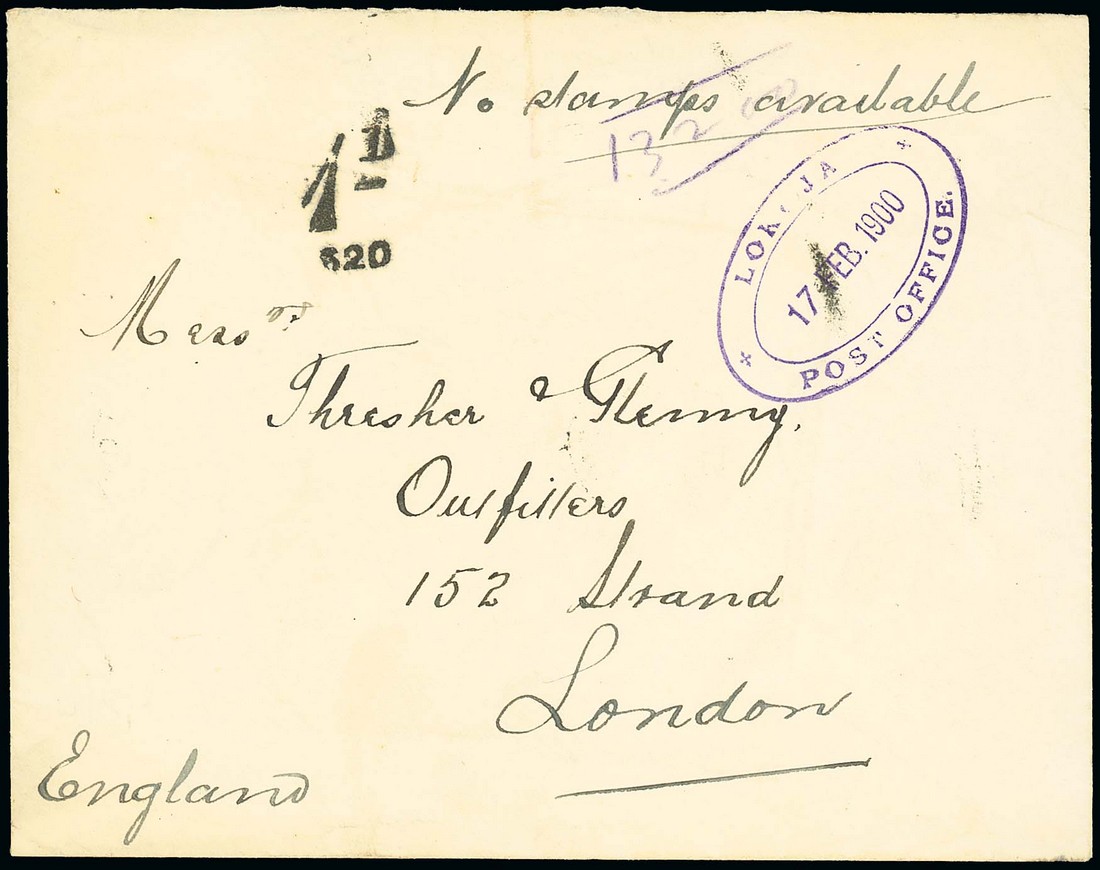 No stamps available
1 D
620
LOKOJA
17 FEB. 1900
POST OFFICE.
Messrs
Thresher & Glenny,
Outfitters
152 Strand
London
England